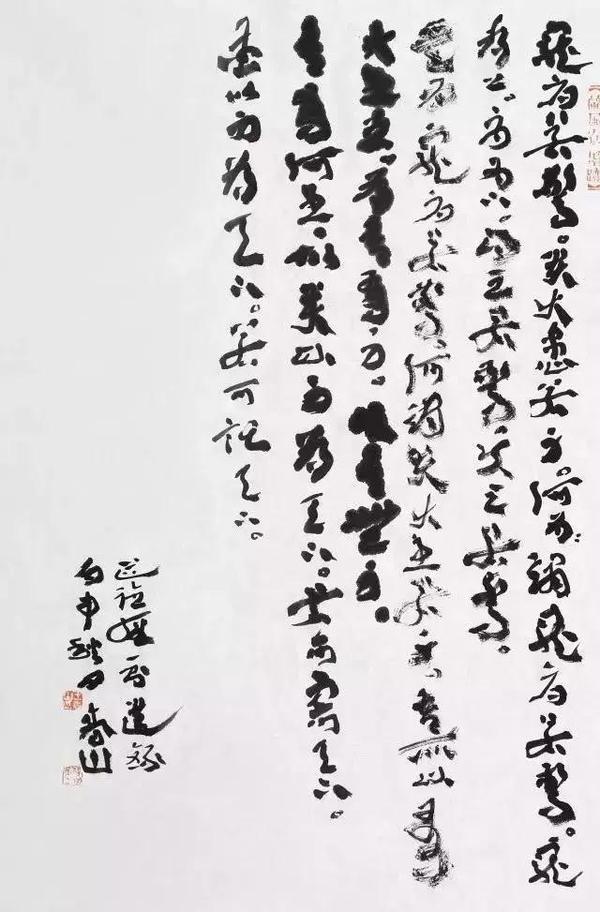 寵辱若驚。貴大患若身。何謂寵辱若驚。寵
為上。辱為下。得之若驚。失之若驚。
是謂寵辱若驚。何謂貴大患若身。吾所以有
大患者。為吾有身。及吾無身。
吾有何患。故貴以身為天下。若可寄天下。
愛以身為天下。若可託天下。
丙申秋月